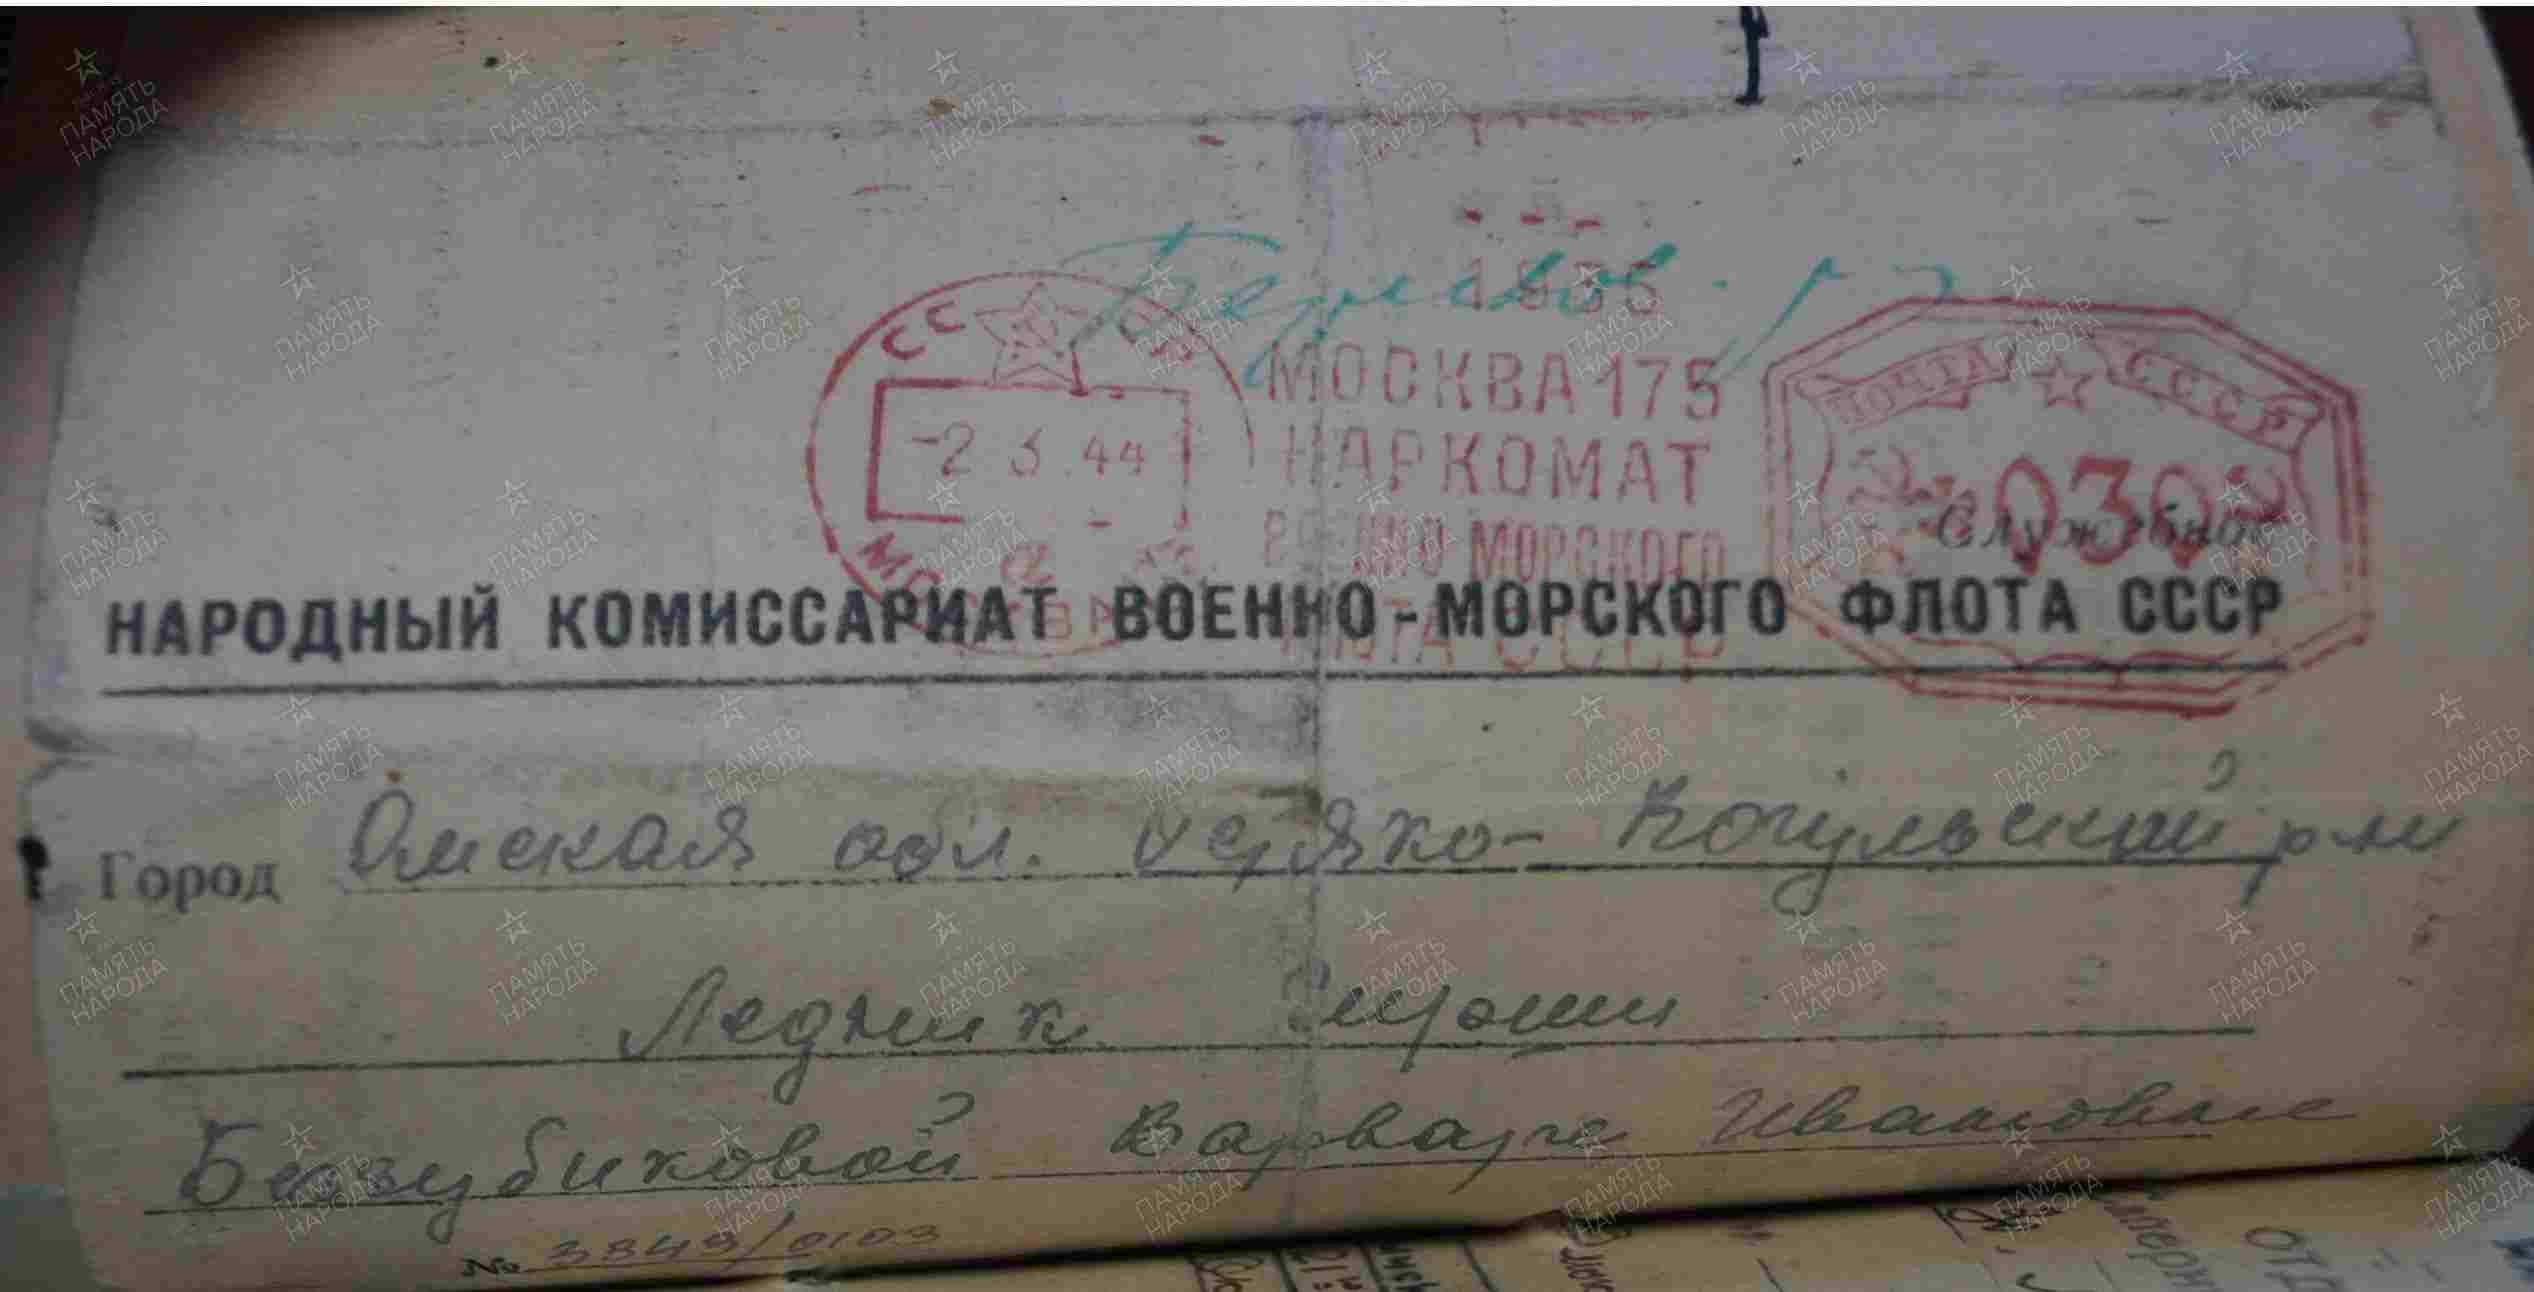 Березов. р-н
СССР
-2 3 44
МОСКВА
1555
МОСКВА 175
НАРКОМАТ
ВОЕННО МОРСКОГО
ФЛОТА СССР
ПОЧТА СССР
030
Служебное
НАРОДНЫЙ КОМИССАРИАТ ВОЕННО-МОРСКОГО ФЛОТА СССР
Город Омская обл. Остяко-Вогульский р-н
Ледник
Беззубиковой Варваре Ивановне
№ 3849/0103
ПАМЯТЬ
НАРОДА